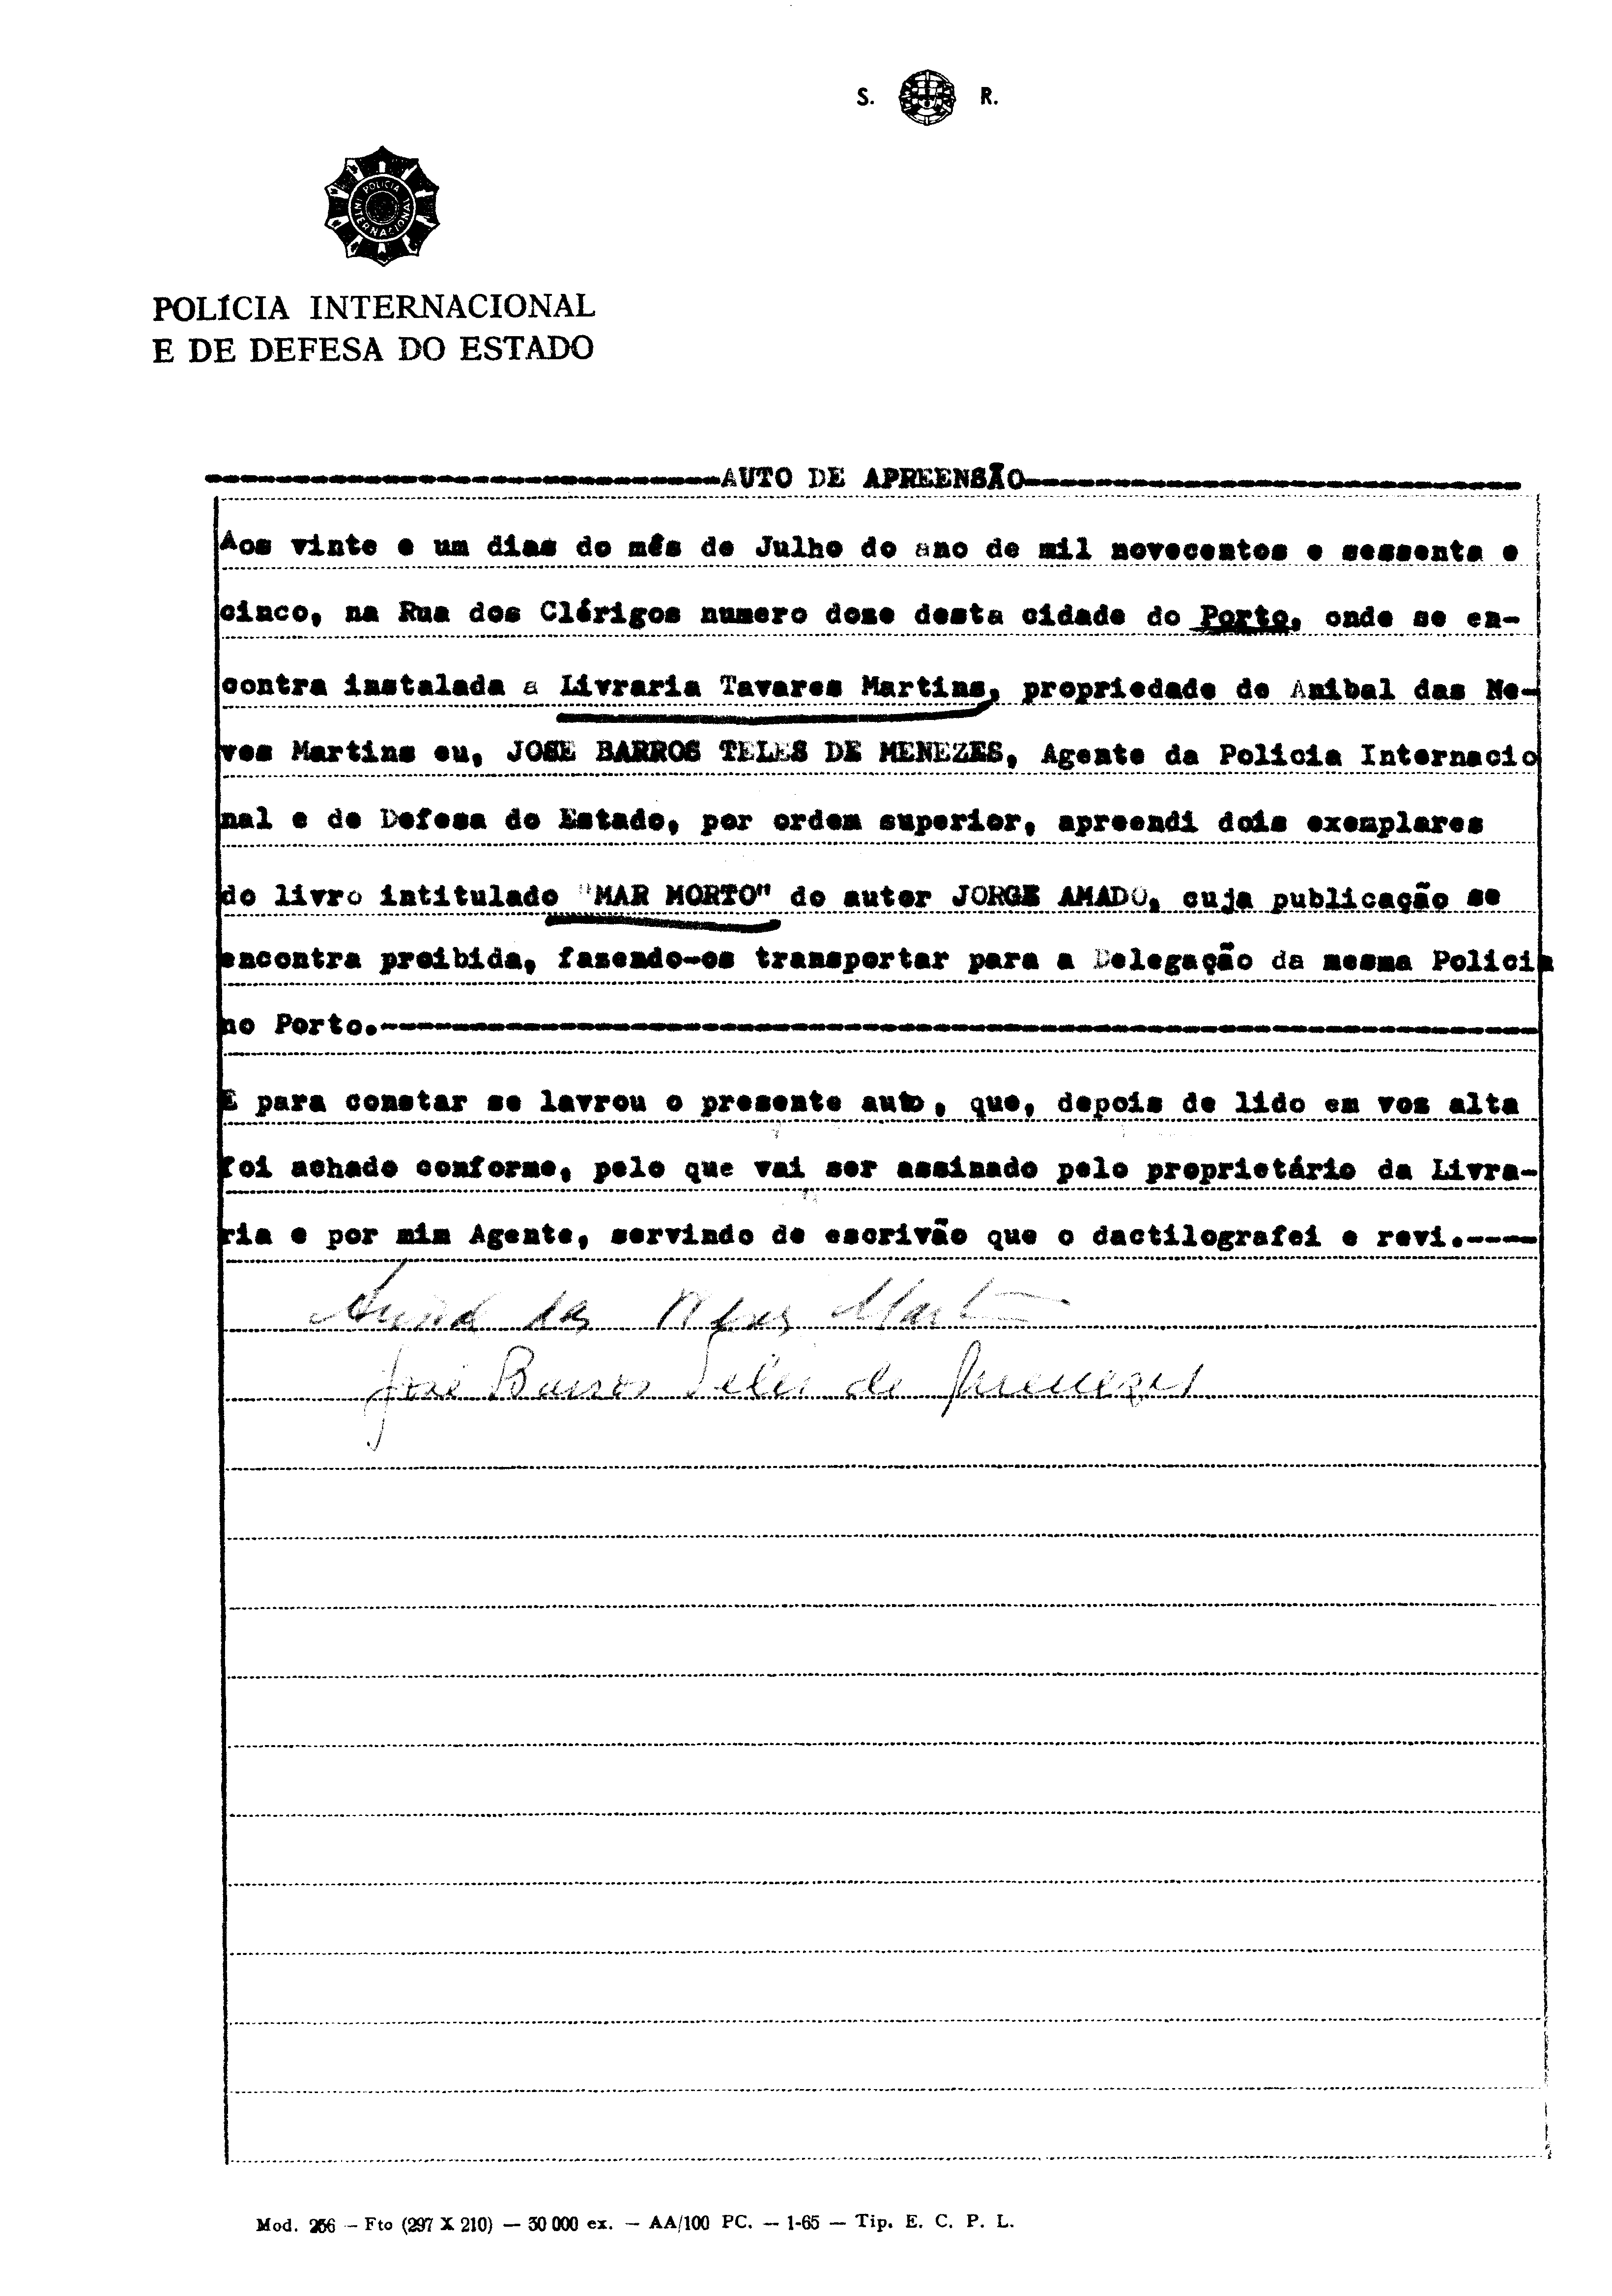 S. R.
POLÍCIA INTERNACIONAL
POLÍCIA INTERNACIONAL
E DE DEFESA DO ESTADO
-----------------------------AUTO DE APREENSÃO----------------------------
Aos vinte e um dias do mês de Julho do ano de mil novecentos e sessenta e
cinco, na Rua dos Clérigos numero doze desta cidade do Porto, onde se en-
contra instalada a Livraria Tavares Martins, propriedade de Anibal das Ne-
ves Martins eu, JOSE BARROS TELES DE MENEZES, Agente da Policia Internacio
nal e de Defesa do Estado, por ordem superior, apreendi dois exemplares
do livro intitulado "MAR MORTO" do autor JORGE AMADO, cuja publicação se
encontra proibida, fazendo-os transportar para a Delegação da mesma Policia
no Porto.-----------------------------------------------------------------
E para constar se lavrou o presente auto, que, depois de lido em voz alta
foi achado conforme, pelo que vai ser assinado pelo proprietário da Livra-
ria e por mim Agente, servindo de escrivão que o dactilografei e revi.----
Anibal das Neves Martins
José Barros Teles de Menezes
Mod. 266 — Fto (297 X 210) — 30 000 ex. — AA/100 PC. — 1-65 — Tip. E. C. P. L.